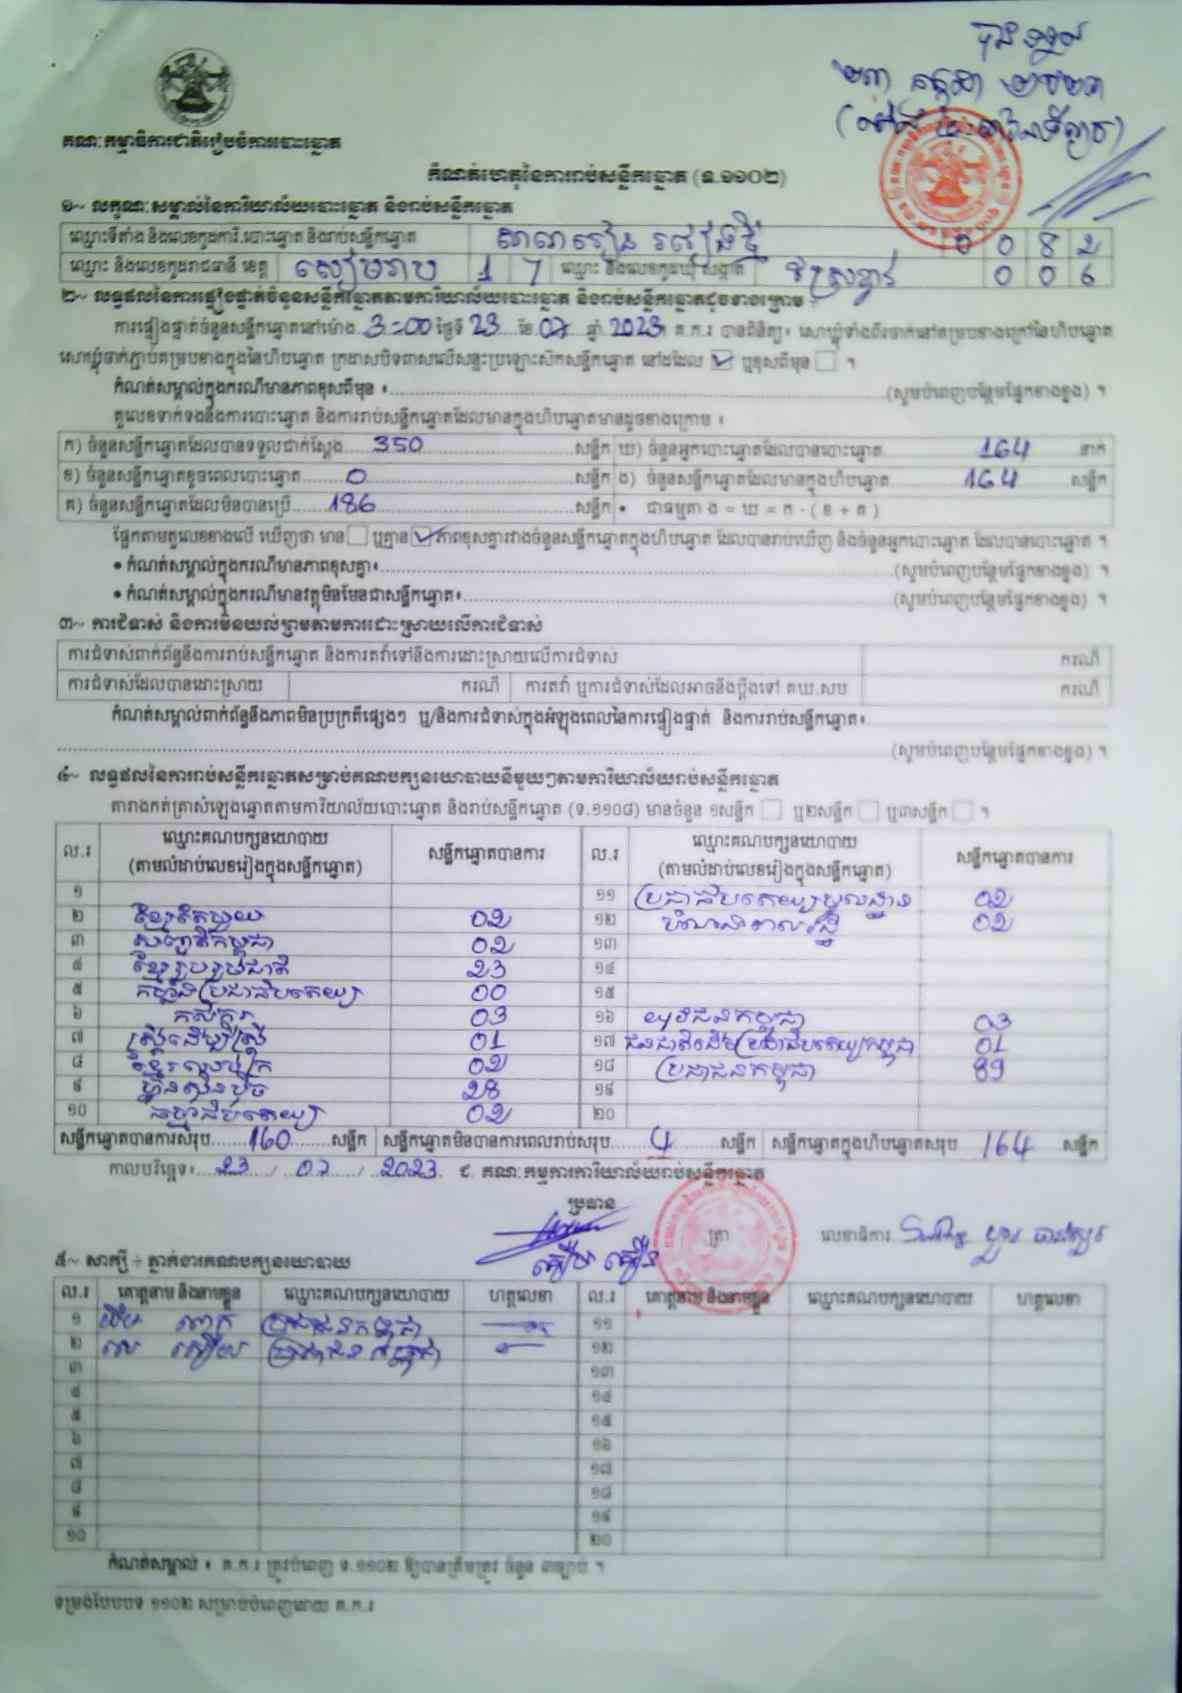 គណៈកម្មាធិការជាតិរៀបចំការបោះឆ្នោត
កំណត់ហេតុនៃការរាប់សន្លឹកឆ្នោត (ទ.១១០២)
១~ លក្ខណៈសម្គាល់នៃការិយាល័យបោះឆ្នោត និងរាប់សន្លឹកឆ្នោត
ឈ្មោះទីតាំង និងលេខកូដការិ.បោះឆ្នោត និងរាប់សន្លឹកឆ្នោត សាលារៀន 0 0 8 2
ឈ្មោះ និងលេខកូដរាជធានី ខេត្ត សៀមរាប 1 7 ឈ្មោះ និងលេខកូដឃុំ សង្កាត់ 0 0 6
២~ លទ្ធផលនៃការផ្ទៀងផ្ទាត់ចំនួនសន្លឹកឆ្នោតតាមការិយាល័យបោះឆ្នោត និងរាប់សន្លឹកឆ្នោតដូចខាងក្រោម ៖
ការផ្ទៀងផ្ទាត់ចំនួនសន្លឹកឆ្នោតនៅម៉ោង 3:00 ថ្ងៃទី 23 ខែ 07 ឆ្នាំ 2023 គ.ក.រ បានពិនិត្យ៖ សោឃ្លុំទាំងពីរចាក់នៅគម្របខាងក្រៅនៃហិបឆ្នោត
សោឃ្លុំចាក់ភ្ជាប់គម្របខាងក្នុងនៃហិបឆ្នោត ក្រដាសបិទពាសលើសន្ទះប្រឡោះសិកសន្លឹកឆ្នោត នៅដដែល ☑ ឬខុសពីមុន ☐ ។
កំណត់សម្គាល់ក្នុងករណីមានភាពខុសពីមុន ៖ (សូមបំពេញបន្ថែមផ្នែកខាងខ្នង) ។
តួលេខទាក់ទងនឹងការបោះឆ្នោត និងការរាប់សន្លឹកឆ្នោតដែលមានក្នុងហិបឆ្នោតមានដូចខាងក្រោម ៖
ក) ចំនួនសន្លឹកឆ្នោតដែលបានទទួលជាក់ស្តែង 350 សន្លឹក ឃ) ចំនួនអ្នកបោះឆ្នោតដែលបានបោះឆ្នោត 164 នាក់
ខ) ចំនួនសន្លឹកឆ្នោតខូចពេលបោះឆ្នោត 0 សន្លឹក ង) ចំនួនសន្លឹកឆ្នោតដែលមានក្នុងហិបឆ្នោត 164 សន្លឹក
គ) ចំនួនសន្លឹកឆ្នោតដែលមិនបានប្រើ 186 សន្លឹក • ជាធម្មតា ង = ឃ = ក - ( ខ + គ )
ផ្អែកតាមតួលេខខាងលើ ឃើញថា មាន ☐ ឬគ្មាន ☑ ភាពខុសគ្នារវាងចំនួនសន្លឹកឆ្នោតក្នុងហិបឆ្នោត ដែលបានរាប់ឃើញ និងចំនួនអ្នកបោះឆ្នោត ដែលបានបោះឆ្នោត ។
• កំណត់សម្គាល់ក្នុងករណីមានភាពខុសគ្នា៖ (សូមបំពេញបន្ថែមផ្នែកខាងខ្នង) ។
• កំណត់សម្គាល់ក្នុងករណីមានវត្ថុមិនមែនជាសន្លឹកឆ្នោត៖ (សូមបំពេញបន្ថែមផ្នែកខាងខ្នង) ។
៣~ ការជំទាស់ និងការមិនយល់ព្រមតាមការដោះស្រាយលើការជំទាស់
ការជំទាស់ពាក់ព័ន្ធនឹងការរាប់សន្លឹកឆ្នោត និងការតវ៉ាទៅនឹងការដោះស្រាយលើការជំទាស់ ករណី
ការជំទាស់ដែលបានដោះស្រាយ ករណី ការតវ៉ា ឬការជំទាស់ដែលអាចនឹងប្តឹងទៅ គឃ.សប ករណី
កំណត់សម្គាល់ពាក់ព័ន្ធនឹងភាពមិនប្រក្រតីផ្សេងៗ ឬ/និងការជំទាស់ក្នុងអំឡុងពេលនៃការផ្ទៀងផ្ទាត់ និងការរាប់សន្លឹកឆ្នោត៖
(សូមបំពេញបន្ថែមផ្នែកខាងខ្នង) ។
៤~ លទ្ធផលនៃការរាប់សន្លឹកឆ្នោតសម្រាប់គណបក្សនយោបាយនីមួយៗតាមការិយាល័យរាប់សន្លឹកឆ្នោត
តារាងកត់ត្រាសំឡេងឆ្នោតតាមការិយាល័យបោះឆ្នោត និងរាប់សន្លឹកឆ្នោត (ទ.១១០៨) មានចំនួន ១សន្លឹក ☐ ឬ២សន្លឹក ☐ ឬ៣សន្លឹក ☐ ។
ល.រ ឈ្មោះគណបក្សនយោបាយ (តាមលំដាប់លេខរៀងក្នុងសន្លឹកឆ្នោត) សន្លឹកឆ្នោតបានការ ល.រ ឈ្មោះគណបក្សនយោបាយ (តាមលំដាប់លេខរៀងក្នុងសន្លឹកឆ្នោត) សន្លឹកឆ្នោតបានការ
១ ១១ 02
២ ខ្មែរតែមួយ 02 ១២ 02
៣ សញ្ជាតិកម្ពុជា 02 ១៣
៤ ខ្មែររួបរួមជាតិ 23 ១៤
៥ កម្លាំងប្រជាធិបតេយ្យ 00 ១៥
៦ កសិករ 03 ១៦ យុវជនកម្ពុជា 03
៧ ស្ត្រីដើម្បីស្ត្រី 01 ១៧ ជនជាតិដើមប្រជាធិបតេយ្យកម្ពុជា 01
៨ 02 ១៨ ប្រជាជនកម្ពុជា 89
៩ ហ្វ៊ុនស៊ិនប៉ិច 28 ១៩
១០ ធម្មាធិបតេយ្យ 02 ២០
សន្លឹកឆ្នោតបានការសរុប 160 សន្លឹក សន្លឹកឆ្នោតមិនបានការពេលរាប់សរុប 4 សន្លឹក សន្លឹកឆ្នោតក្នុងហិបឆ្នោតសរុប 164 សន្លឹក
កាលបរិច្ឆេទ៖ 23 / 07 / 2023 ៩. គណៈកម្មការការិយាល័យរាប់សន្លឹកឆ្នោត
ប្រធាន
ត្រា លេខាធិការ
៥~ សាក្សី ÷ ភ្នាក់ងារគណបក្សនយោបាយ
ល.រ គោត្តនាម និងនាមខ្លួន ឈ្មោះគណបក្សនយោបាយ ហត្ថលេខា ល.រ គោត្តនាម និងនាមខ្លួន ឈ្មោះគណបក្សនយោបាយ ហត្ថលេខា
១ ប្រជាជនកម្ពុជា ១១
២ ប្រជាជនកម្ពុជា ១២
៣ ១៣
៤ ១៤
៥ ១៥
៦ ១៦
៧ ១៧
៨ ១៨
៩ ១៩
១០ ២០
កំណត់សម្គាល់ ៖ គ.ក.រ ត្រូវបំពេញ ទ.១១០២ ឱ្យបានត្រឹមត្រូវ ចំនួន ៣ច្បាប់ ។
ទម្រង់បែបបទ ១១០២ សម្រាប់បំពេញដោយ គ.ក.រ